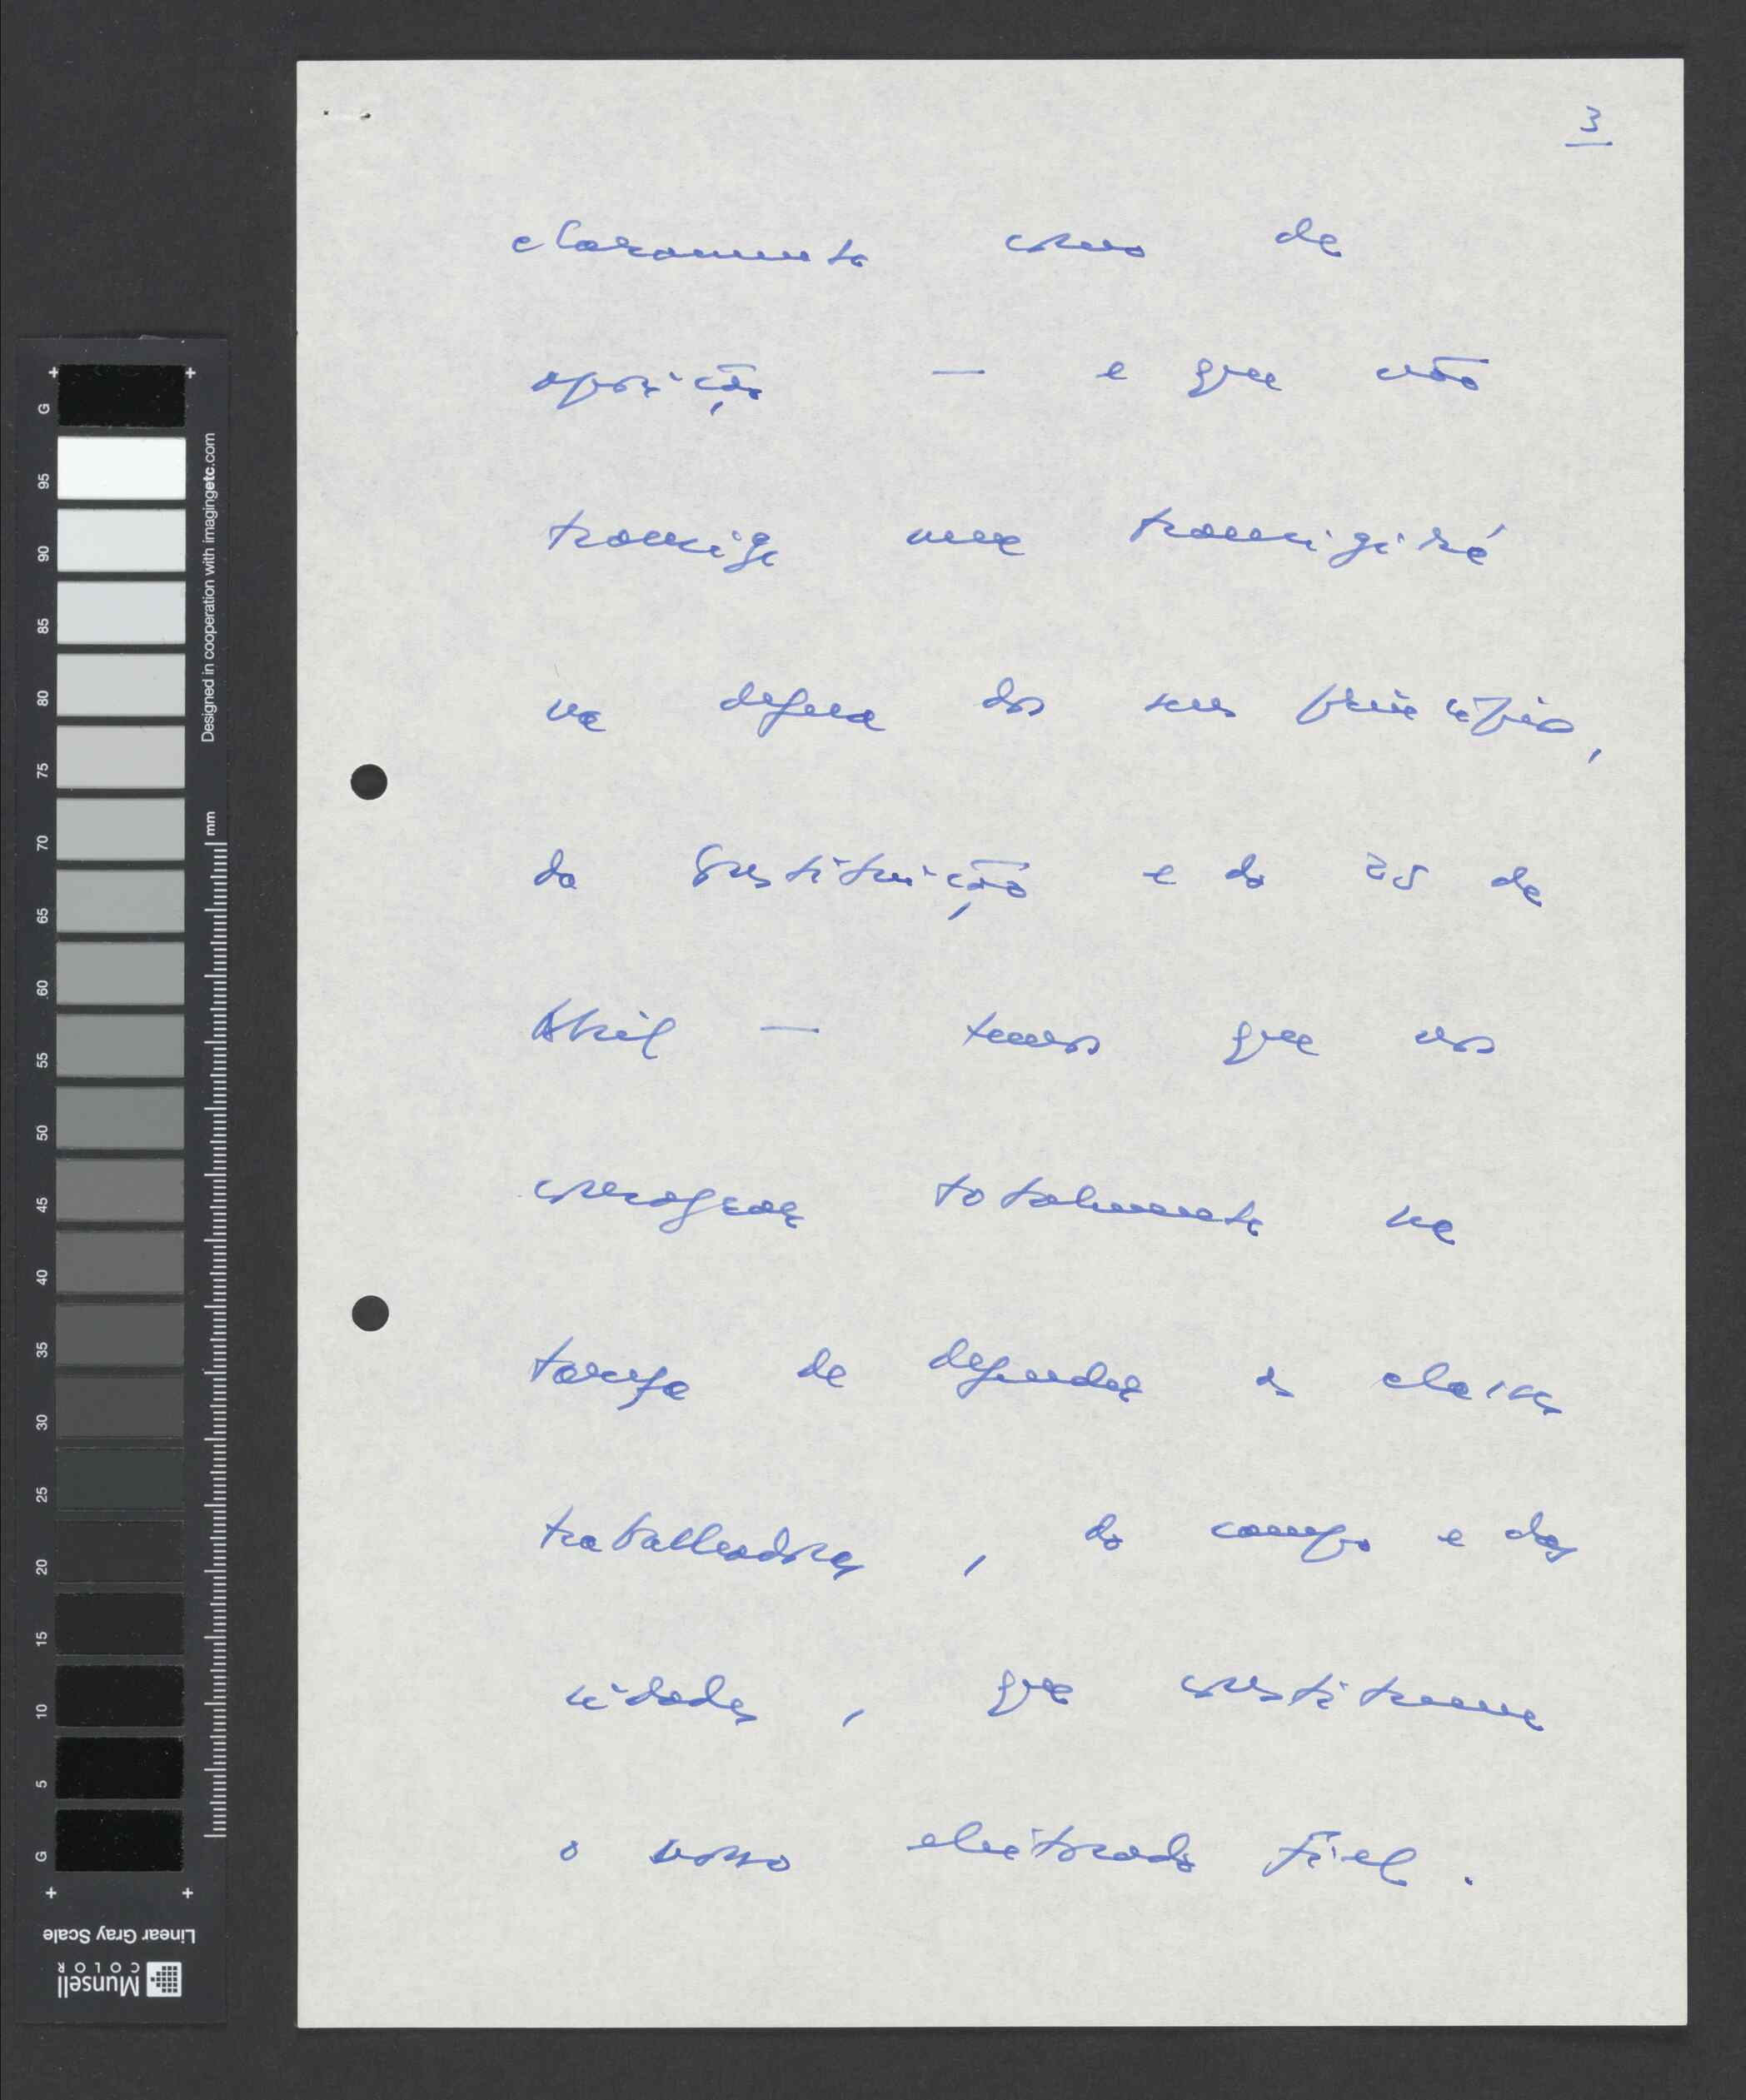 3
claramente como de
oposição — e que não
transige nem transigirá
na defesa dos seus princípios,
da Constituição e do 25 de
Abril — temos que nos
consagrar totalmente na
tarefa de defender as classes
trabalhadoras, do campo e das
cidades, que constituem
o nosso eleitorado fiel.
G
95
90
85
80
75
70
65
60
55
50
45
40
35
30
25
20
15
10
5
G
Designed in cooperation with imagingetc.com
mm
Linear Gray Scale
Munsell
COLOR